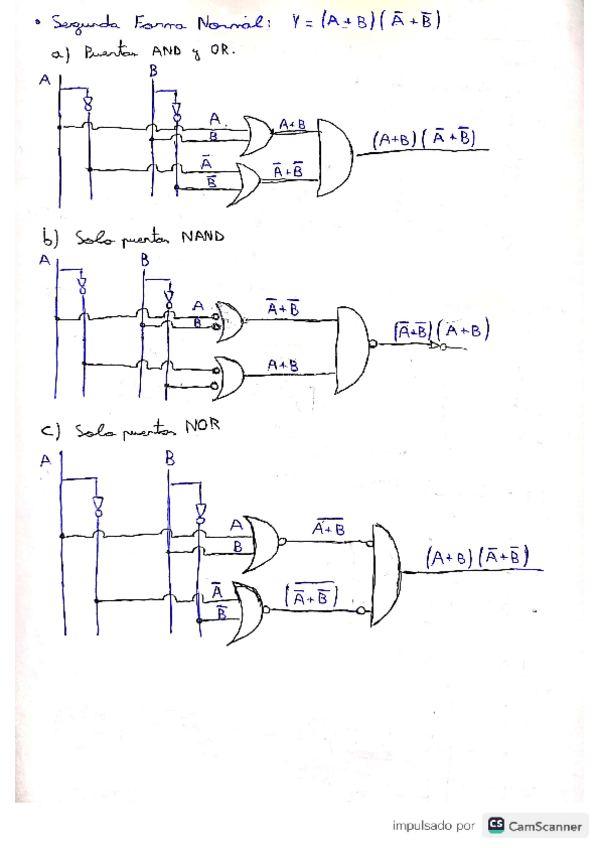 • Segunda Forma Normal: Y = (A + B)(Ā + B̄)
a) Puertas AND y OR.
A B
A
B
A+B
(A+B)(Ā+B̄)
Ā
B̄
Ā+B̄
b) Solo puertas NAND
A B
A
B
Ā+B̄
(Ā+B̄)(A+B)
A+B
c) Solo puertas NOR
A B
A
B
A̅+̅B̅
(A+B)(Ā+B̄)
Ā
B̄
(Ā+B̄)
impulsado por CS CamScanner